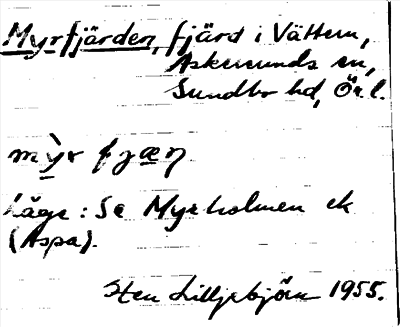 Myrfjärden, fjärd i Vättern,
Askersunds sn,
Sundbo hd, Ör l.
mỳr fjæn
Läge: Se Myrholmen ek
(Aspa).
Sten Lilljebjörn 1955.